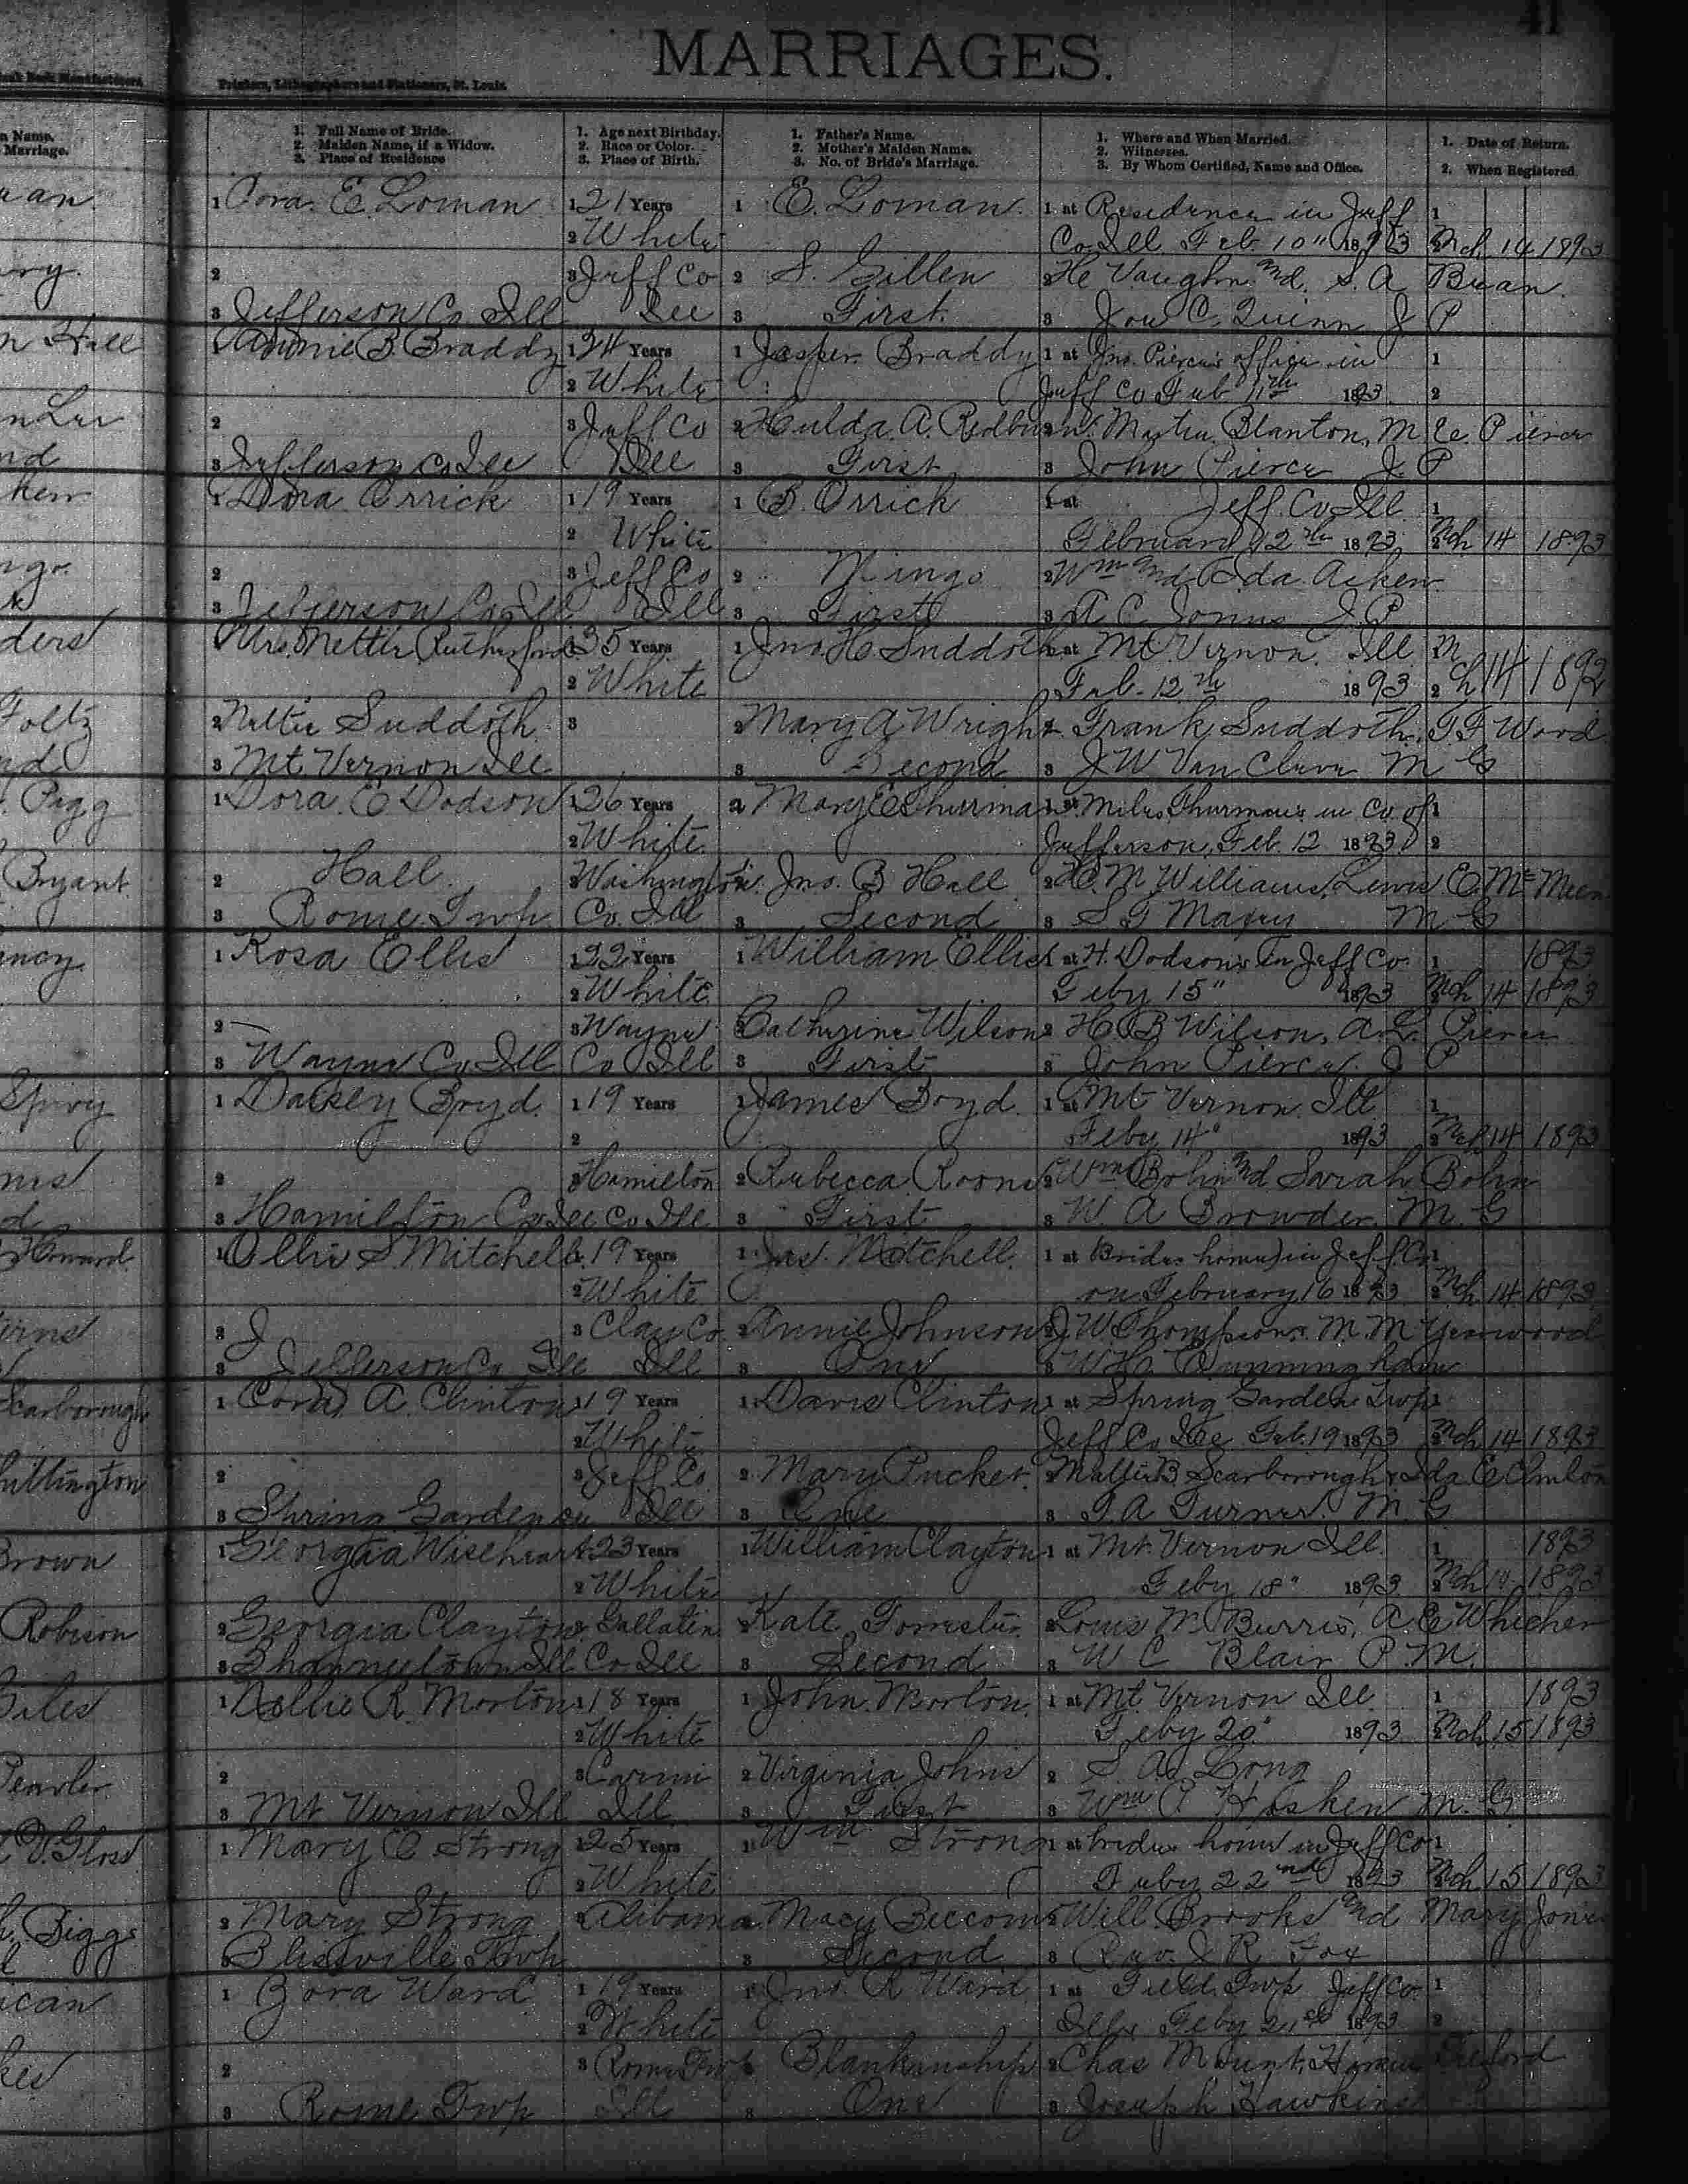 41
MARRIAGES.
Printers, Lithographers and Stationers, St. Louis.
1. Full Name of Bride.
2. Maiden Name, if a Widow.
3. Place of Residence
1. Age next Birthday.
2. Race or Color.
3. Place of Birth.
1. Father's Name.
2. Mother's Maiden Name.
3. No. of Bride's Marriage.
1. Where and When Married.
2. Witnesses.
3. By Whom Certified, Name and Office.
1. Date of Return.
2. When Registered.
1 Cora E. Loman 1 21 Years 1 E. Loman 1 at Residence in Jeff 1
2 White Co Ill Feb. 10" 1893 2 Mch 14 1893
2 3 Jeff Co 2 S. Gillen 2 He Vaughn and S. A Bean
3 Jefferson Co Ill Ill 3 First 3 Jow C. Quinn J P
1 Annie B. Braddy 1 24 Years 1 Jasper Braddy 1 at Jno. Pierce's office in 1
2 White Jeff Co Feb 11th 1893 2
2 3 Jeff Co 2 Hulda A. 2 Blanton, Pierce
3 Jefferson Co Ill Ill 3 First 3 John Pierce J. P
1 Dora Orrick 1 19 Years 1 B. Orrick 1 at Jeff. Co Ill 1
2 White February 12th 1893 2 Mch 14 1893
2 3 Jeff Co 2 Mingo 2 Wm and Ida Aiken
3 Jefferson Co Ill Ill 3 First 3 A C Jones J P
1 Mrs. Nettie Rutherford 1 35 Years 1 Jno. H. Suddoth 1 at Mt Vernon Ill 1 M
2 White Feb. 12th 1893 2 ch 14 1892
2 Nettie Suddoth 3 2 Mary A Wright 2 Frank Suddoth, T F Ward
3 Mt Vernon Ill 3 Second 3 J W Van Cleve M G
1 Dora E Dodson 1 26 Years 2 Mary E Thurman 1 at Miles Thurman's in Co of 1
2 White Jefferson, Feb. 12 1893 2
2 Hall 3 Washington 1 Jno. B Hall 2 H. M Williams, Lewis E.
3 Rome Twp. Co. Ill 3 Second 3 S G Maxey M G
1 Rosa Ellis 1 22 Years 1 William Ellis 1 at H. Dodson's in Jeff Co. 1 1893
2 White Feby 15" 1893 2 Mch 14 1893
2 3 Wayne 2 Catherine Wilson 2 H. B Wilson, A. L. Pierce
3 Wayne Co Ill Co Ill 3 First 3 John Pierce J P
1 Daisey Boyd. 1 19 Years 1 James Boyd 1 at Mt Vernon Ill 1
2 Feby 14" 1893 2 Mch 14 1893
2 3 Hamilton 2 Rebecca 2 Wm Bohn and Sarah Bohn
3 Hamilton Co Ill Co Ill 3 First 3 W. A Browder, M. G
1 Ollie S Mitchell 1 19 Years 1 Jas. Mitchell 1 at Brides home in Jeff Co 1
2 White on February 16 1893 2 Mch 14 1893
2 J 3 Clay Co. 2 Annie Johnson 2 J W Thompson, M. M Yearwood
3 Jefferson Co Ill Ill 3 One 3 W H. Cunningham
1 Cora A. Clinton 1 19 Years 1 Davis Clinton 1 at Spring Garden Twp 1
2 White Jeff Co Ill Feb. 19 1893 2 Mch 14 1893
2 3 Jeff Co 2 Mary Pucket 2 B Scarborough & Ida E Clinton
3 Spring Garden Ill 3 One 3 J. A Turner M. G
1 Georgia Wiseheart 1 23 Years 1 William Clayton 1 at Mt. Vernon Ill. 1 1893
2 White Feby 18" 1893 2 Mch 1893
2 Georgia Clayton 3 Gallatin 2 Kate 2 Louis M. Burris, A. E Whicher
3 Shawneetown Ill Co Ill 3 Second 3 W C Blair P. M.
1 Nellie R. Morton 1 18 Years 1 John Morton 1 at Mt Vernon Ill 1 1893
2 White Feby 20" 1893 2 Mch 15 1893
2 3 Carmi 2 Virginia Johns 2 S. A. Long
3 Mt Vernon Ill Ill 3 First 3 Wm P. Hosken M. G
1 Mary E Strong 1 25 Years 1 Wm Strong 1 at brides home in Jeff Co 1
2 White Feby 22nd 1893 2 Mch 15 1893
2 Mary Strong 3 Alibama 2 Macy 2 Will Brooks and Mary Jones
3 Blissville Twp 3 Second 3 Rev. J R. Fox
1 Zora Ward 1 19 Years 1 Jno. R Ward 1 at Field Twp Jeff Co. 1
2 White Ills Feby 21st 1893 2
2 3 Rome Twp 2 Blankenship 2 Chas
3 Rome Twp Ill 3 One 3 Joseph Hawkins